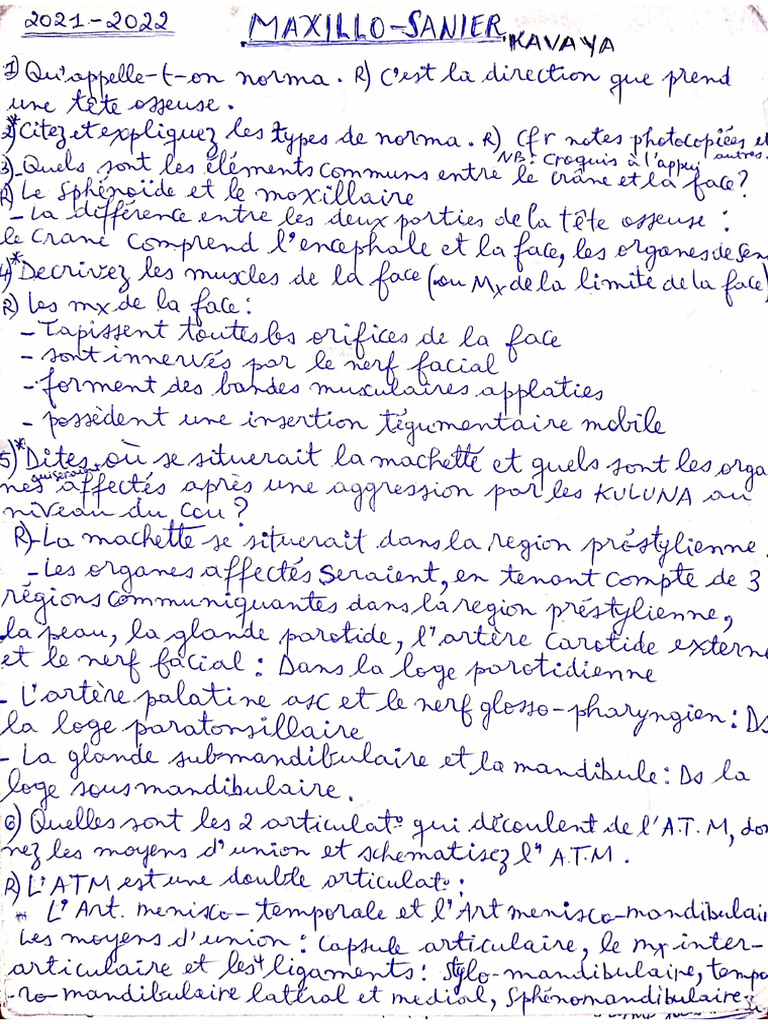 2021-2022 MAXILLO-SANIER KAVAYA
1) Qu'appelle-t-on norma. R) C'est la direction que prend
une tête osseuse.
2)* Citez et expliquez les types de norma. R) Cfr notes photocopiées et
autres. NB: Croquis à l'appui
3)- Quels sont les éléments communs entre le crâne et la face?
R) Le Sphénoïde et le moxillaire
- La différence entre les deux porties de la tête osseuse :
le crane comprend l'encephale et la face, les organes de sen
4)* Decrivez les muscles de la face (ou Mx de la limite de la face)
R) Les mx de la face:
- Tapissent toutes les orifices de la face
- sont innervés par le nerf facial
- forment des bandes muxulaires applaties
- possèdent une insertion tégumentaire mobile
5)* Dites où se situerait la machette et quels sont les orga
nes qui seraient affectés après une aggression par les KULUNA au
niveau du cou?
R)- La machette se situerait dans la region préstylienne.
- Les organes affectés seraient, en tenant compte de 3
régions communiquantes dans la region préstylienne,
la peau, la glande parotide, l'artère carotide externe
et le nerf facial : Dans la loge parotidienne
- L'artère palatine asc et le nerf glosso-pharyngien : Ds
la loge paratonsillaire
- La glande submandibulaire et la mandibule : Ds la
loge sousmandibulaire.
6) Quelles sont les 2 articulat° qui découlent de l'A.T.M, don
nez les moyens d'union et schematisez l' A.T.M.
R) L'ATM est une double articulat° :
* L'Art. menisco-temporale et l'Art menisco-mandibulair
Les moyens d'union : Capsule articulaire, le mx inter-
articulaire et les 4 ligaments : Stylo-mandibulaire, tempo
-ro-mandibulaire latéral et medial, Sphénomandibulaire.